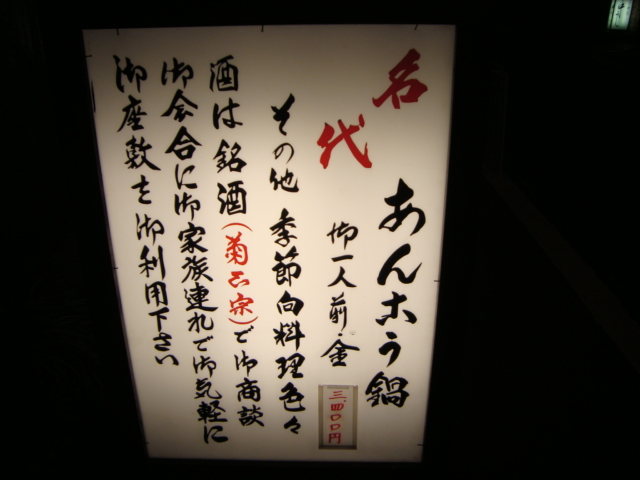 名代
あんこう鍋
御一人前・金
三、四〇〇円
その他 季節向料理色々
酒は銘酒(菊正宗)で御商談
御会合に御家族連れで御気軽に
御座敷を御利用下さい